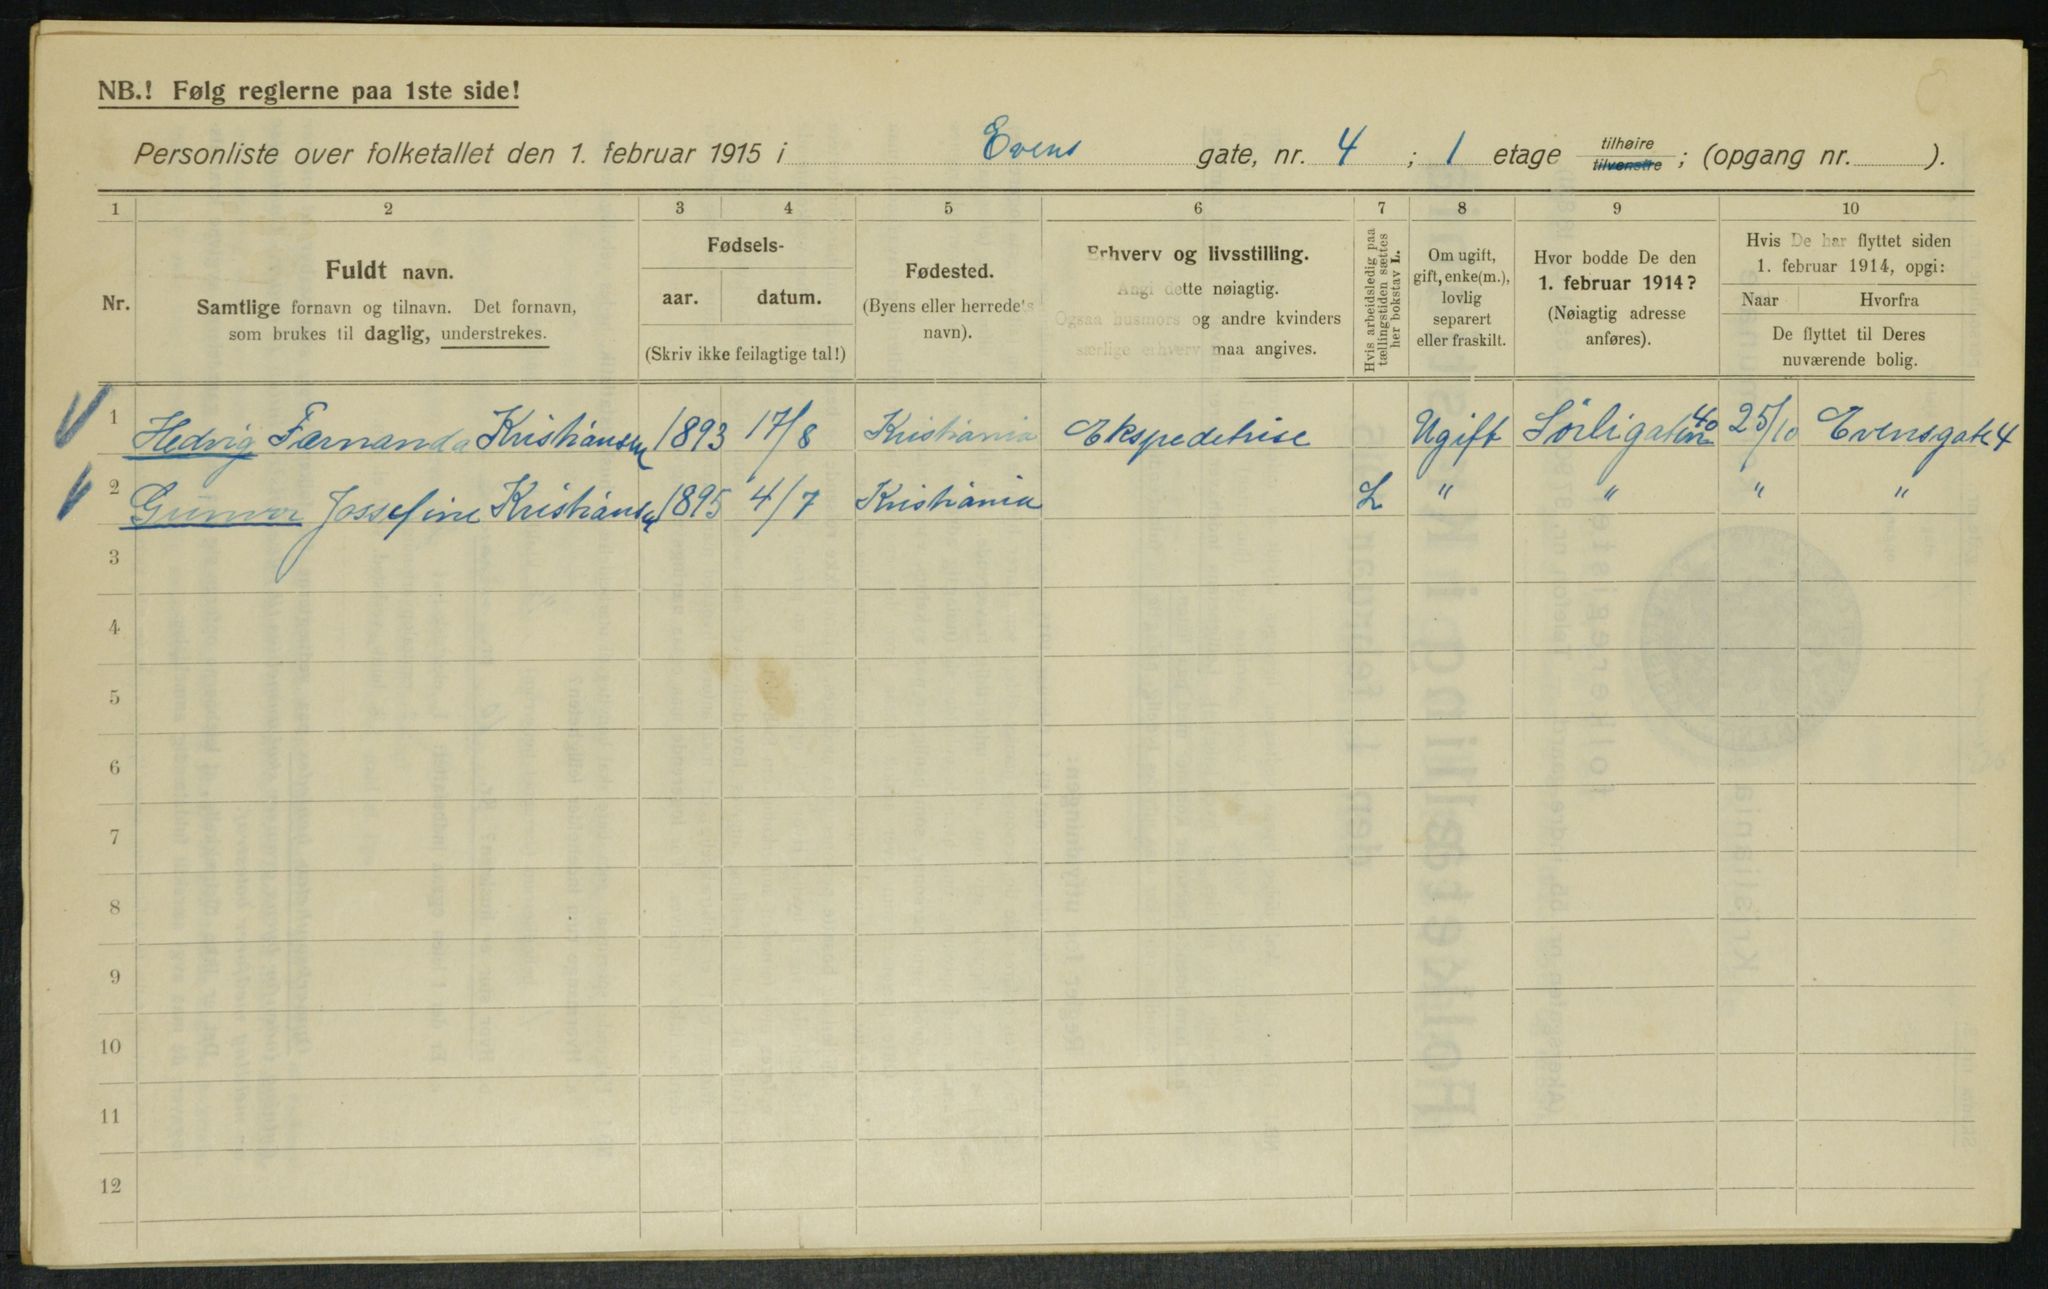 NB.! Følg reglerne paa 1ste side!
Personliste over folketallet den 1. februar 1915 i Evens gate, nr. 4 ; 1 etage tilhøire tilvenstre ; (opgang nr. ).
1 2 3 4 5 6 7 8 9 10
Nr.
Fuldt navn.
Samtlige fornavn og tilnavn. Det fornavn,
som brukes til daglig, understrekes.
Fødsels-
aar. datum.
(Skriv ikke feilagtige tal!)
Fødested.
(Byens eller herredets
navn).
Erhverv og livsstilling.
Angi dette nøiagtig.
Ogsaa husmors og andre kvinders
særlige erhverv maa angives.
Hvis arbeidsledig paa
tællingstiden sættes
her bokstav L.
Om ugift,
gift, enke(m.),
lovlig
separert
eller fraskilt.
Hvor bodde De den
1. februar 1914?
(Nøiagtig adresse
anføres).
Hvis De har flyttet siden
1. februar 1914, opgi:
Naar Hvorfra
De flyttet til Deres
nuværende bolig.
1 Hedvig Færnanda Kristiansen 1893 17/8 Kristiania Ekspeditrise Ugift Sørligaten 40 25/10 Evensgate 4
2 Gunvor Jossefine Kristiansen 1895 4/7 Kristiania L " " " "
3
4
5
6
7
8
9
10
11
12